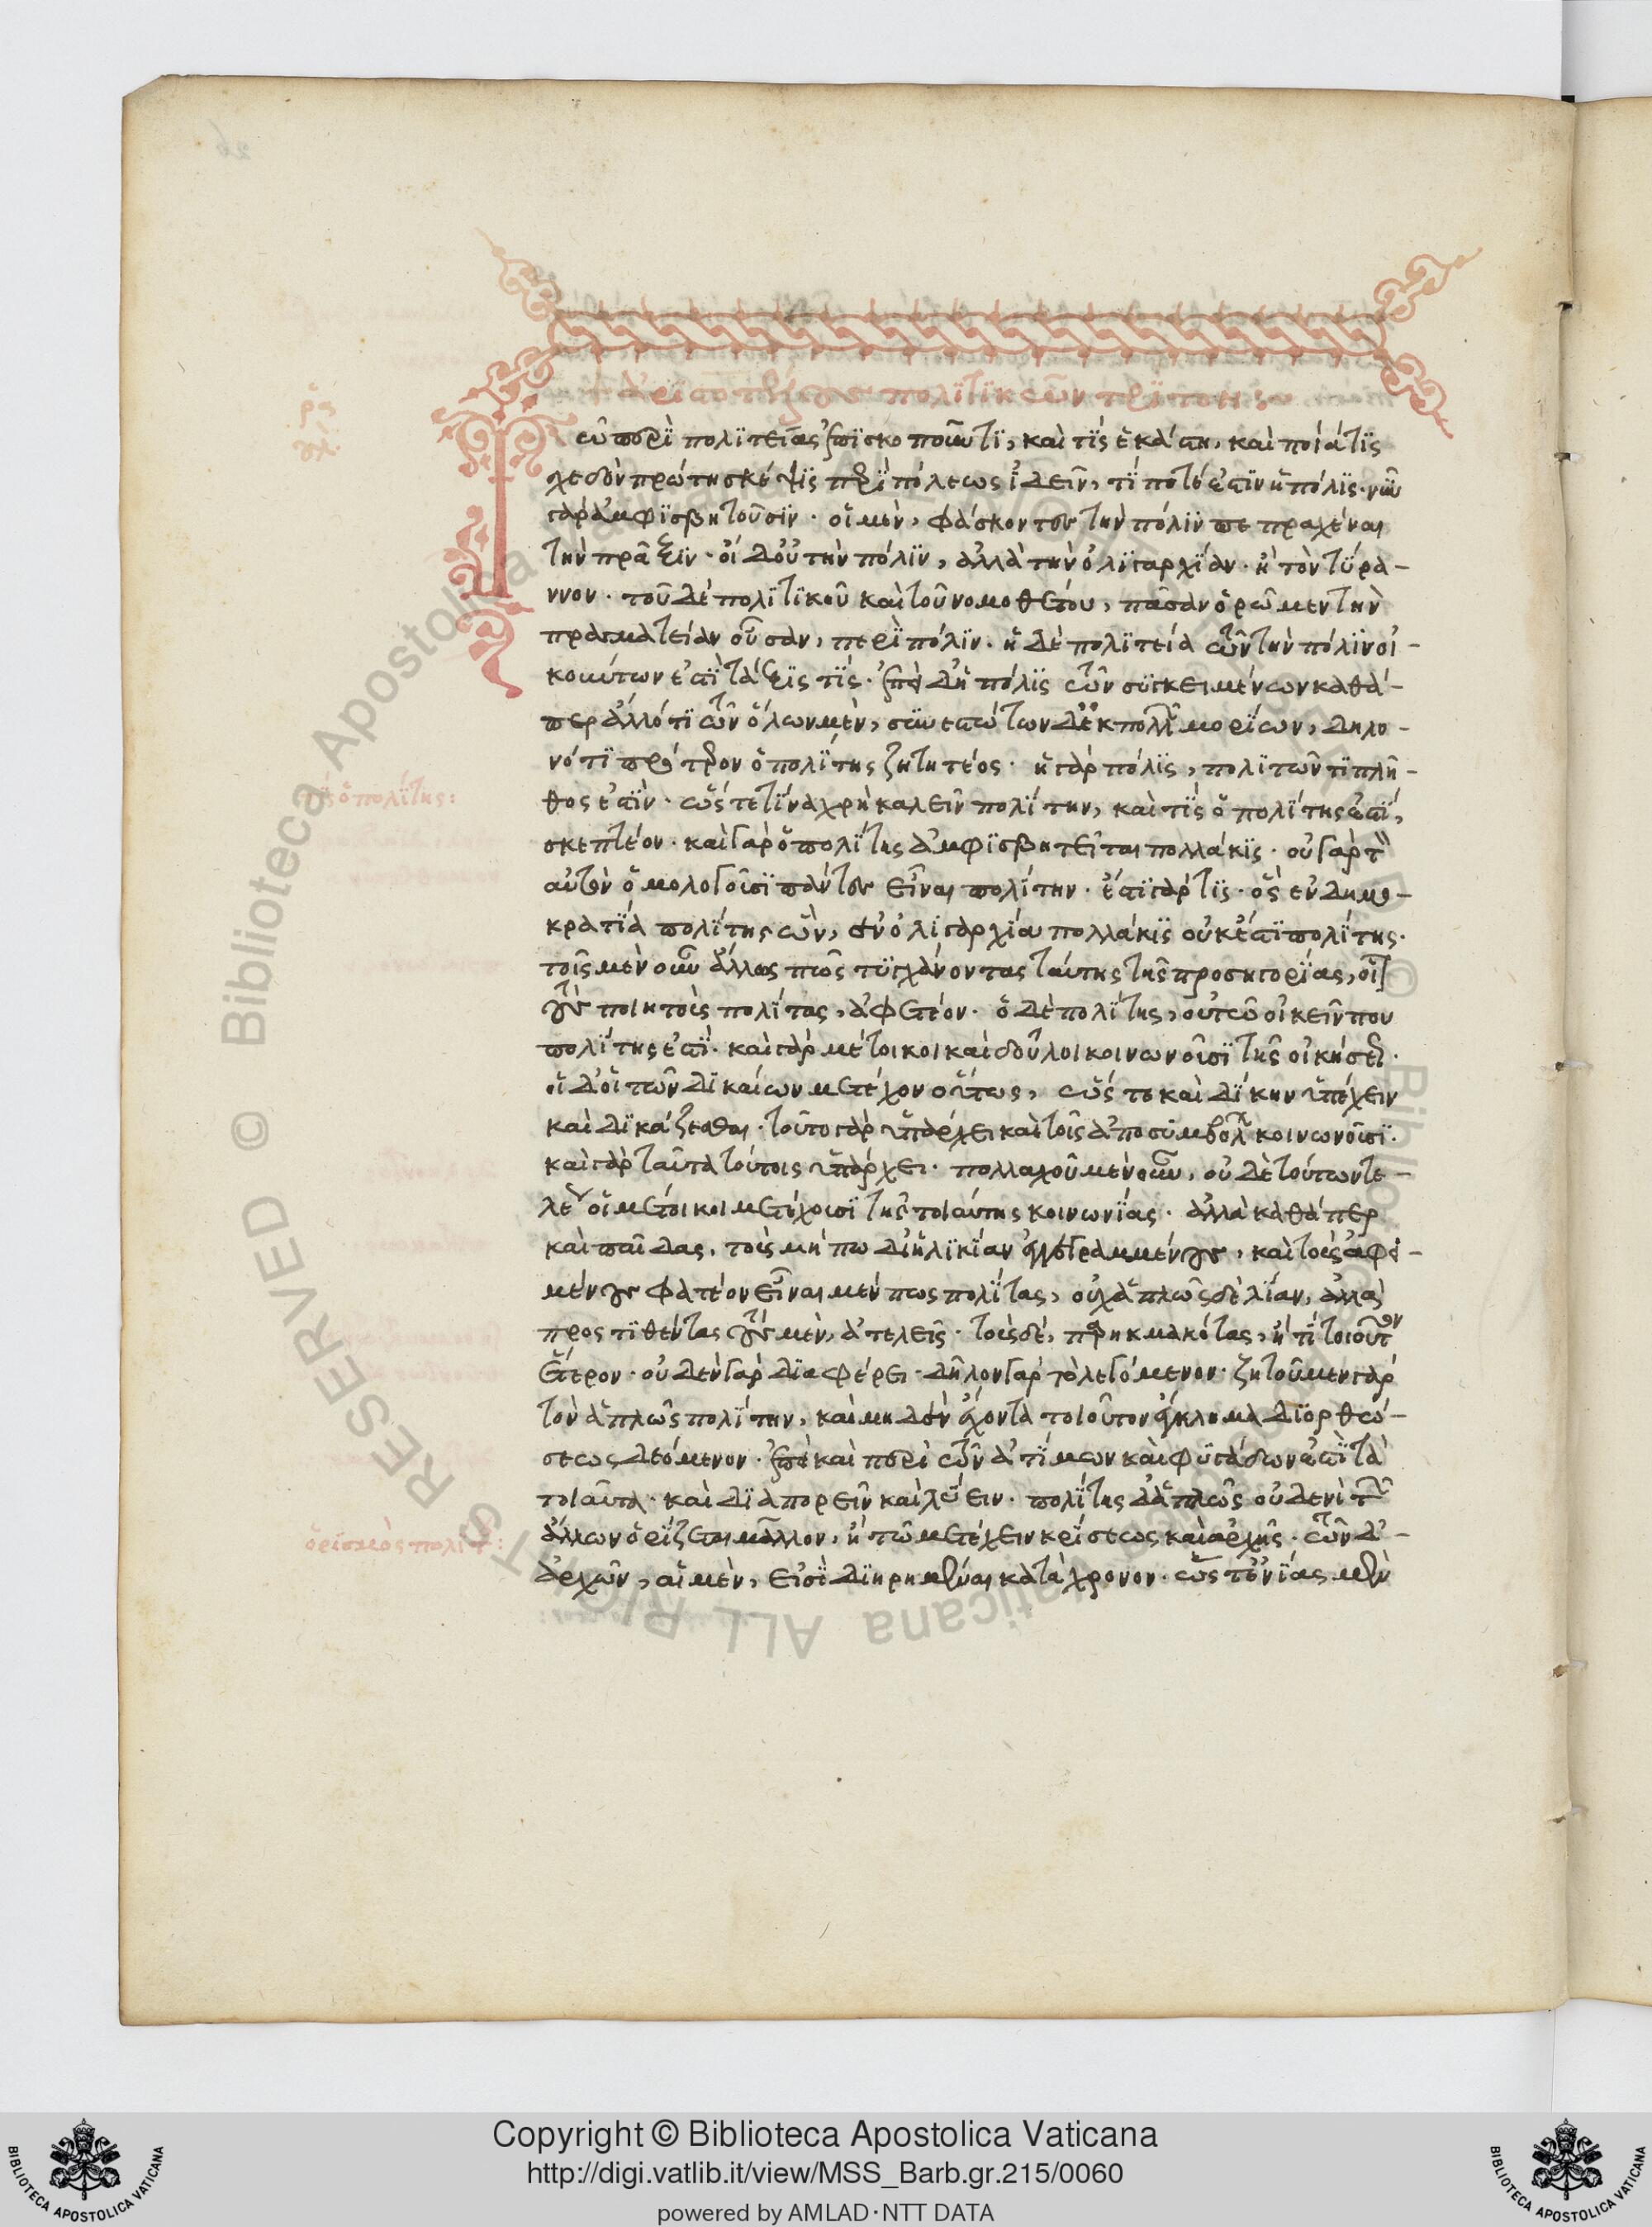 26
ἀριστοτέλους πολιτικῶν τρίτον:
Τῶ περὶ πολιτείας ἐπισκοποῦντι, καὶ τίς ἑκάστη, καὶ ποία τίς
σχεδὸν πρώτη σκέψις περὶ πόλεως ἰδεῖν, τί ποτέ ἐστιν ἡ πόλις· νῦν
γὰρ ἀμφισβητοῦσιν· οἱ μὲν, φάσκοντες τὴν πόλιν πεπραχέναι
τὴν πρᾶξιν· οἱ δ' οὐ τὴν πόλιν, ἀλλὰ τὴν ὀλιγαρχίαν· ἢ τὸν τύρα-
ννον· τοῦ δὲ πολιτικοῦ καὶ τοῦ νομοθέτου, πᾶσαν ὁρῶμεν τὴν
πραγματείαν οὖσαν, περὶ πόλιν. ἡ δὲ πολιτεία τῶν τὴν πόλιν οἰ-
κούντων ἐστὶ τάξις τίς· ἐπεὶ δ' ἡ πόλις τῶν συγκειμένων καθά-
περ ἄλλό τι τῶν ὅλων μὲν, συνεστώτων δ' ἐκ πολλῶν μορίων, δηλο-
νότι πρότερον ὁ πολίτης ζητητέος· ἡ γὰρ πόλις, πολιτῶν τι πλῆ-
θος ἐστίν· ὥστε τίνα χρὴ καλεῖν πολίτην, καὶ τίς ὁ πολίτης ἐστί,
τίς ὁ πολίτης:
σκεπτέον· καὶ γὰρ ὁ πολίτης ἀμφισβητεῖται πολλάκις· οὐ γὰρ τὸν
αὐτὸν ὁμολογοῦσι πάντες εἶναι πολίτην· ἔστι γάρ τις· ὃς ἐν δημο-
κρατία πολίτης ὢν, ἐν ὀλιγαρχία πολλάκις οὐκ ἔστι πολίτης.
τοὺς μὲν οὖν ἄλλως πως τυγχάνοντας ταύτης τῆς προσηγορίας, οἷον
τοὺς ποιητοὺς πολίτας, ἀφετέον· ὁ δὲ πολίτης, οὐ τῶ οἰκεῖν που
πολίτης ἐστί· καὶ γὰρ μέτοικοι καὶ δοῦλοι κοινωνοῦσι τῆς οἰκήσεως.
οἱ δ' οἱ τῶν δικαίων μετέχοντες οὕτως, ὥστε καὶ δίκην ὑπέχειν
καὶ δικάζεσθαι· τοῦτο γὰρ ὑπάρχει καὶ τοῖς ἀπο συμβόλων κοινωνοῦσι.
καὶ γὰρ ταῦτα τούτοις ὑπάρχει· πολλαχοῦ μὲν οὖν, οὐδὲ τούτων τε-
λέως οἱ μέτοικοι μετέχουσι τῆς τοιαύτης κοινωνίας· ἀλλὰ καθάπερ
καὶ παῖδας, τοὺς μήπω δι' ἡλικίαν ἐγγεγραμμένους, καὶ τοὺς ἀφει-
μένους φατέον εἶναι μέν πως πολίτας, οὐχ ἁπλῶς δὲ λίαν, ἀλλὰ
προστιθέντας τοὺς μὲν, ἀτελεῖς· τοὺς δὲ, παρηκμακότας, ἤ τι τοιοῦτον
ἕτερον· οὐδὲν γὰρ διαφέρει· δῆλον γὰρ τὸ λεγόμενον· ζητοῦμεν γὰρ
τὸν ἁπλῶς πολίτην, καὶ μηδὲν ἔχοντα τοιοῦτον ἔγκλημα διορθώ-
σεως δεόμενον· ἐπεὶ καὶ περὶ τῶν ἀτίμων καὶ φυγάδων ἐστὶ τὰ
τοιαῦτα· καὶ διαπορεῖν καὶ λύειν· πολίτης δ' ἁπλῶς οὐδενὶ τῶν
ἄλλων ὁρίζεται μᾶλλον, ἢ τῶ μετέχειν κρίσεως καὶ ἀρχῆς· τῶν δ'-
ὁρισμὸς πολίτου:
ἀρχῶν, αἱ μὲν, εἰσὶ διηρημέναι κατὰ χρόνον· ὥστ' ἐνίας μὲν
Copyright © Biblioteca Apostolica Vaticana
http://digi.vatlib.it/view/MSS_Barb.gr.215/0060
powered by AMLAD·NTT DATA
BIBLIOTECA APOSTOLICA VATICANA
BIBLIOTECA APOSTOLICA VATICANA